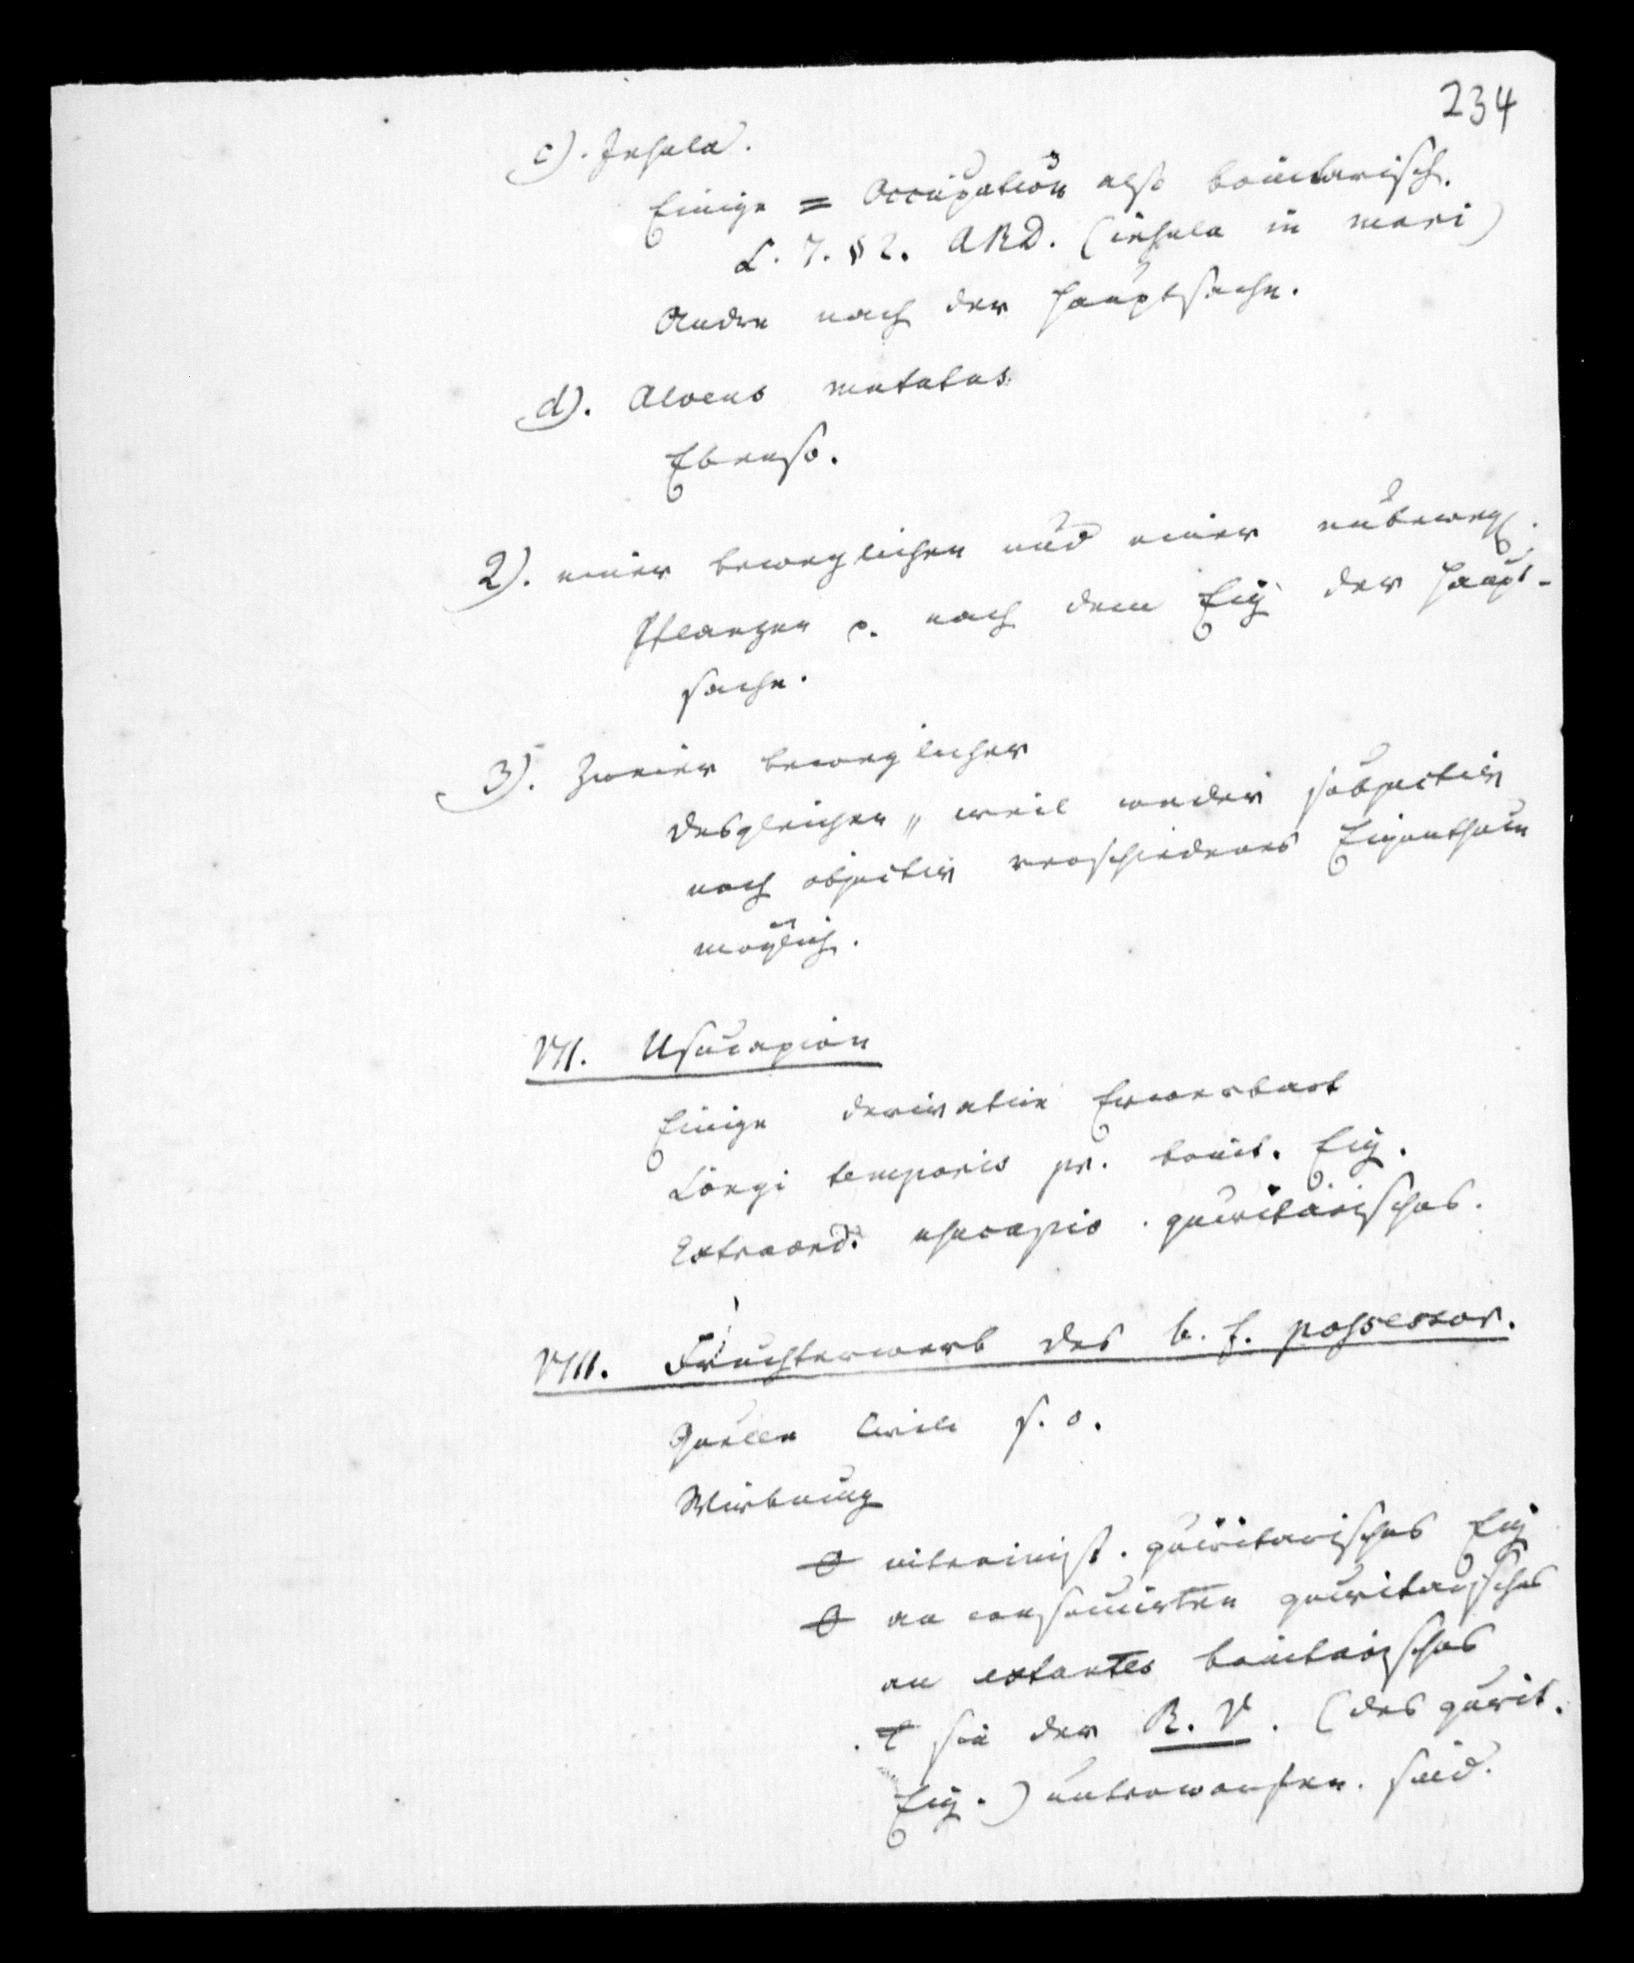 234
c). Insula.
Einige = Occupation also bonitarisch.
L. 7. § 2. ARD. (insula in mari)
Andre nach der Hauptsache.
d). Alveus mutatus
Ebenso.
2). einer beweglichen und einer unbewegl.
Pflanzen p. nach dem Eig der Haupt-
sache.
3). Zweier beweglicher
desgleichen, weil weder subjectiv
noch objectiv verschiedenes Eigenthum
möglich.
VII. Usucapion
Einige derivative Erwerbart
Longi temporis pr. bonit. Eig.
Extraord. usucapio. quiritarisches.
VIII. Fruchterwerb des b. f. possessor.
Quelle Civil s. o.
Wirkung
interimist. quiritarisches Eig
an consumirten quiritarisches
an extantes bonitarisches
sie der R. V. (des quirit.
Eig.) unterworfen sind.